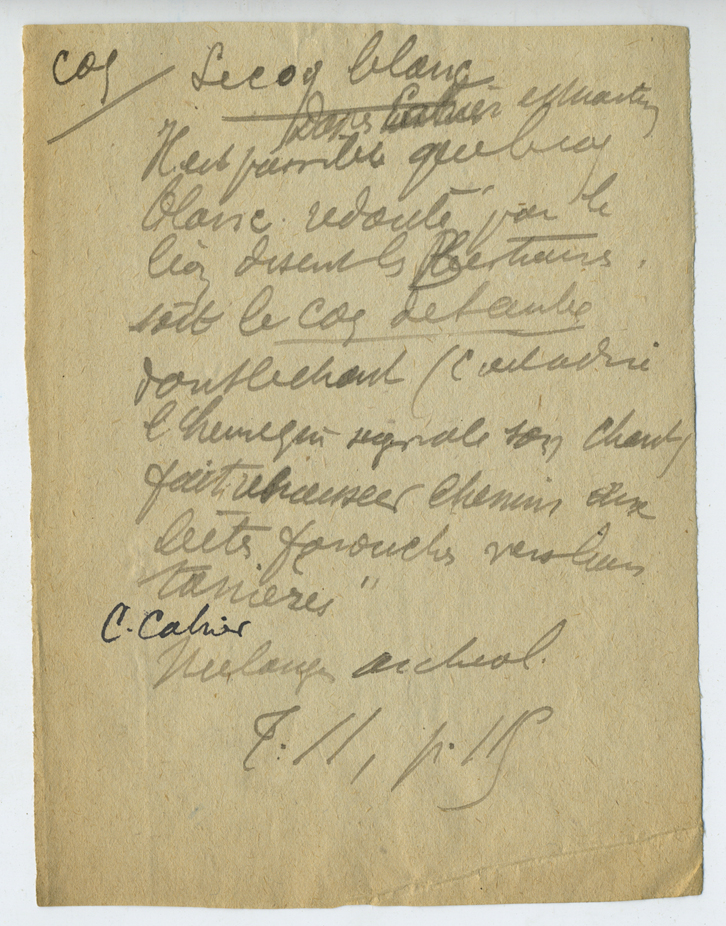 coq / Le coq blanc
Dans Cahier et Martin
Il est possible que le coq
blanc redouté par le
lion disent les Bestiaires,
soit le coq de l'aube
dont le chant (c'est à dire
l'heure que signale son chant)
fait rebrousser chemin aux
bêtes farouches vers leurs
tanières"
C. Cahier
Mélanges archeol.
T. II, p. 115